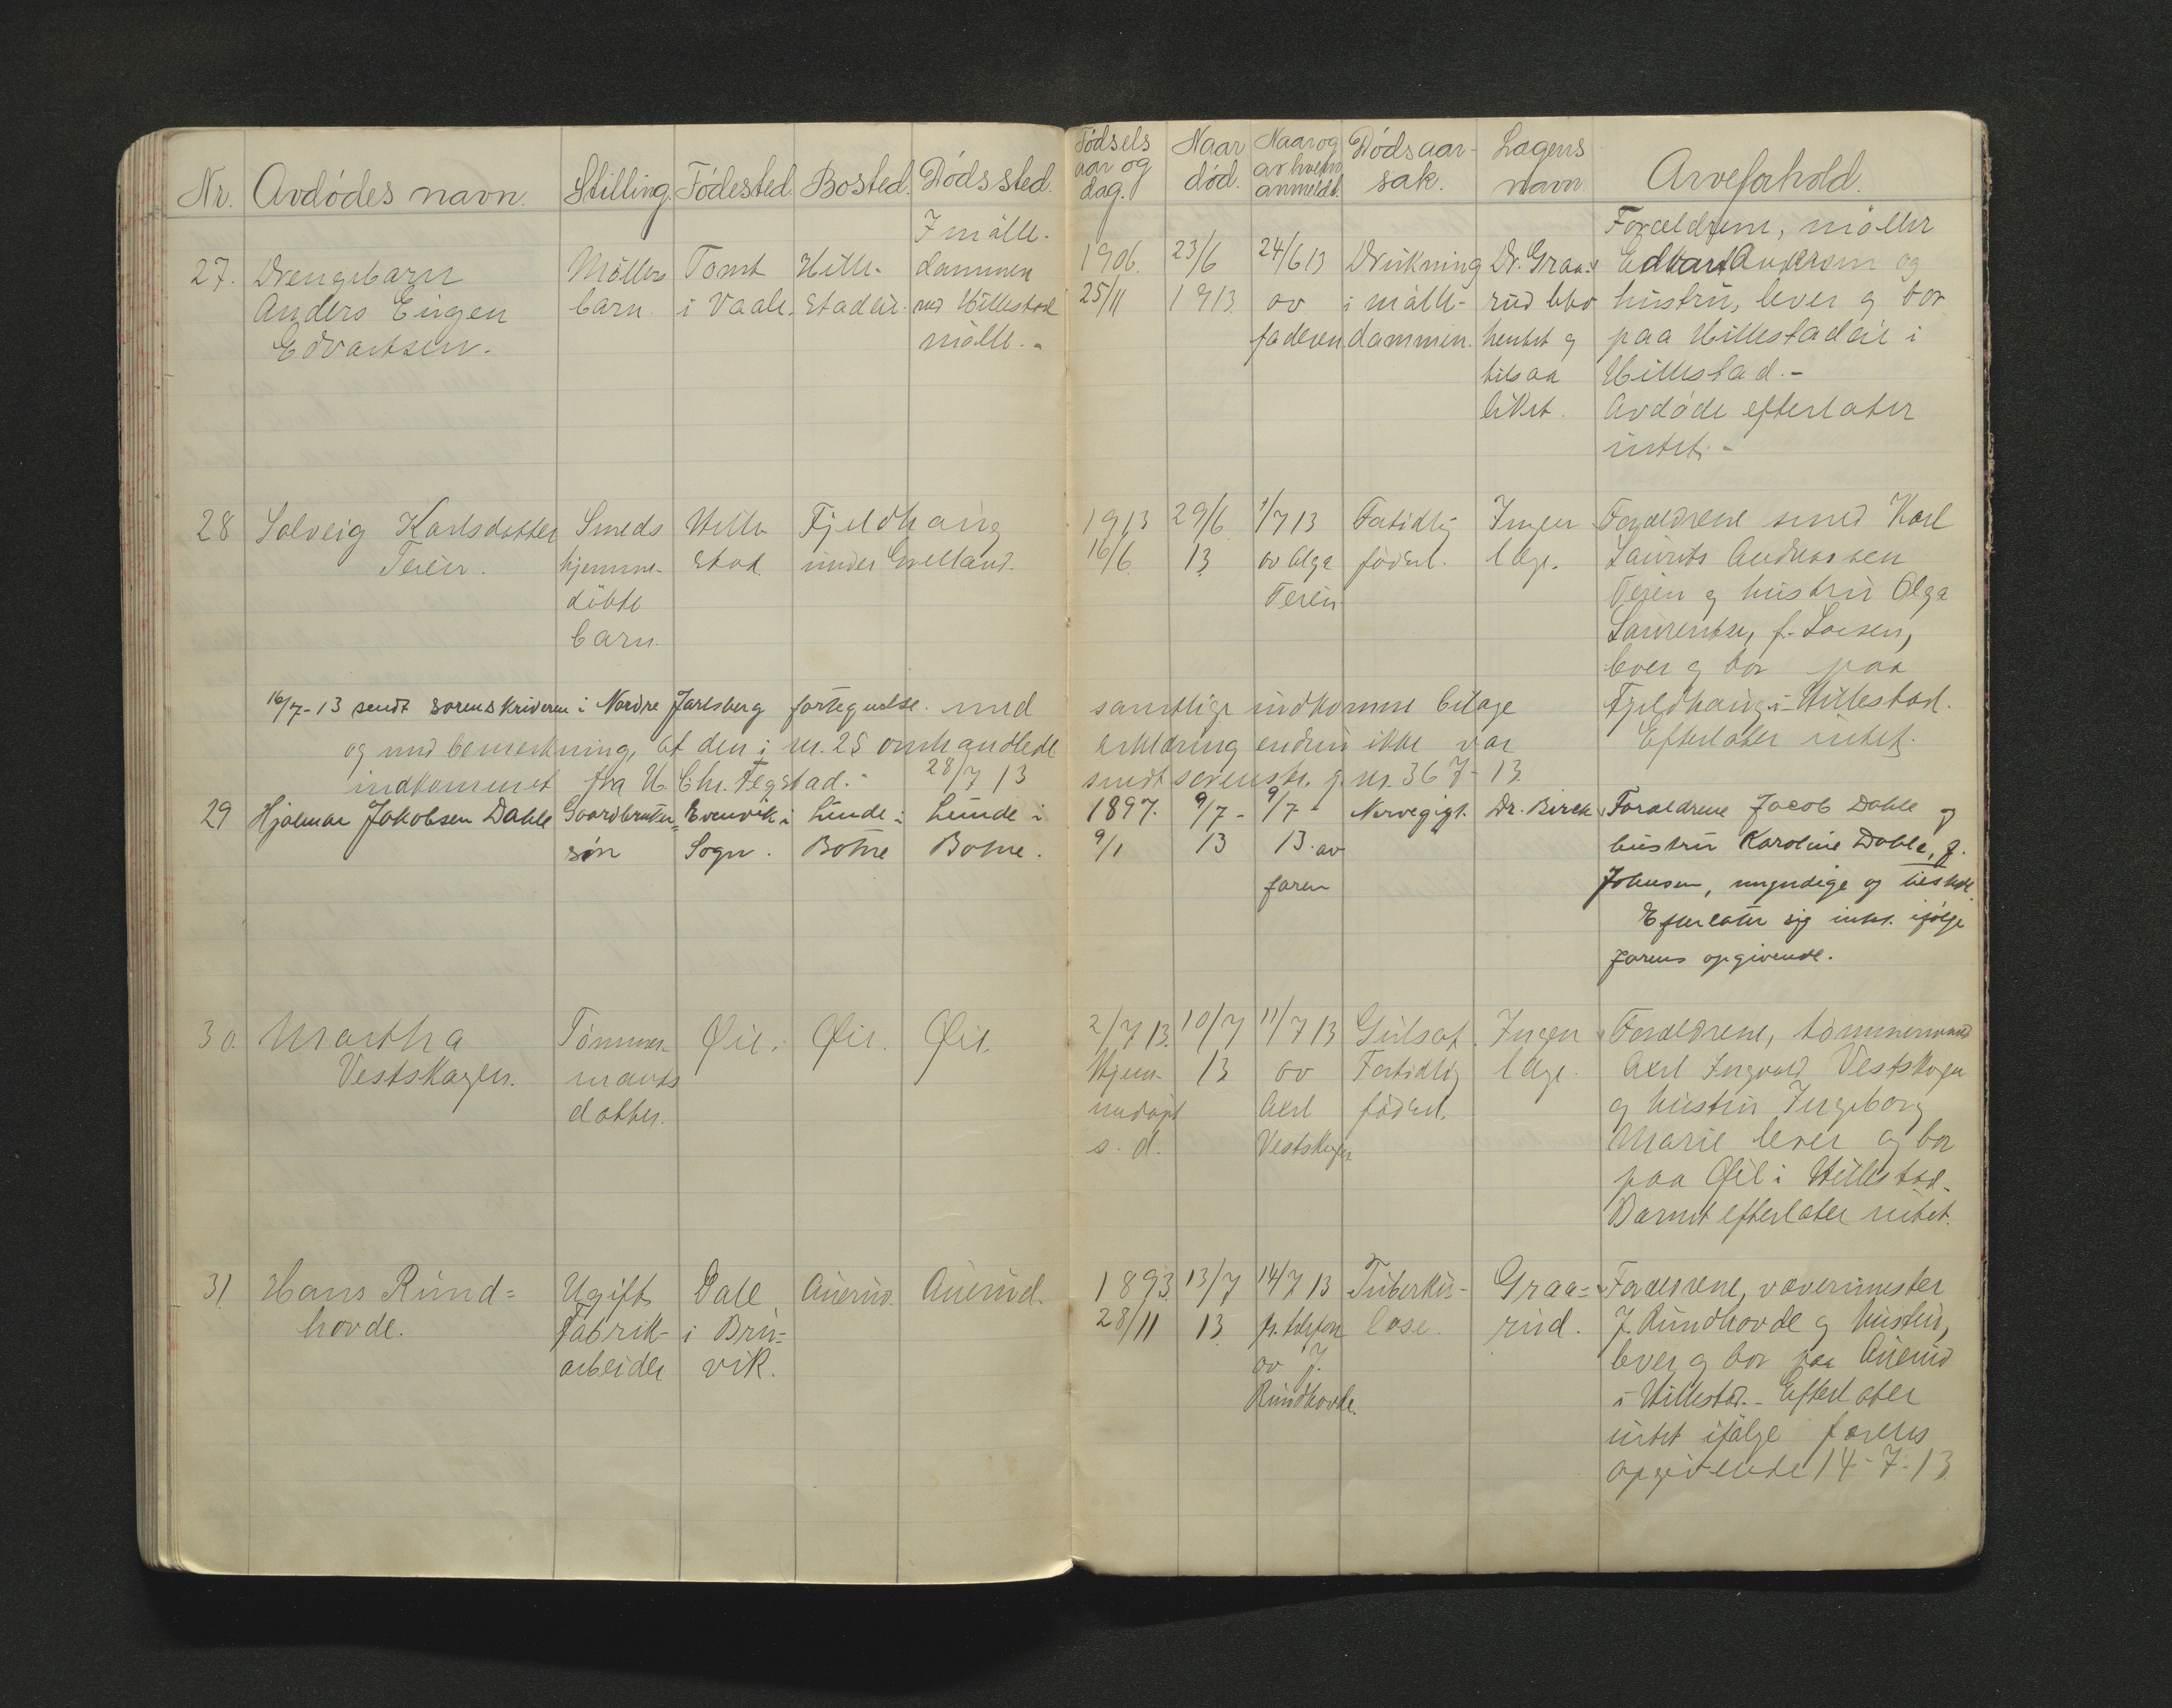 Nr. Avdødes navn. Stilling. Fødested. Bosted. Dødssted. Fødsels aar og dag. Naar død. Naar og av hvem anmeldt. Dødsaarsak. Lægens navn. Arveforhold.
27. Drengebarn
Anders Eugen
Edvartsen.
Møllers
barn.
Tomt
i Vaale.
Hille-
stadeie.
I mølle-
dammen
ved Hillestad
mølle.-
1906.
25/11
23/6
1913.
24/6 13
av
faderen
Drukning
i mølle-
dammen.
Dr. Graa-
rud blev
hentet og
tilsaa
liket.
Forældrene, møller
og
hustru, lever og bor
paa Hillestadeie i
Hillestad.-
Avdøde efterlater
intet.-
28 Solveig Karlsdatter
Teien.
Smeds
hjemme-
døbte
barn.
Hille-
stad.
Fjeldhaug
under
1913
16/6.
29/6
13.
1/7 13
av Olga
Teien
Fortidlig
fødsel.
Ingen
læge.
Forældrene smed Karl
Laurits Andreassen
Teien og hustru Olga
f.
lever og bor paa
Fjeldhaug i Hillestad.
Efterlater intet.
16/7-13 sendt sorenskriveren i Nordre Jarlsberg fortegnelse med samtlige indkomne bilage
og med bemerkning, at den i nr. 25 omhandlede erklæring endnu ikke var
indkommet fra H. Chr. 28/7 13 sendt sorenskr. j. nr. 367-13.
29 Hjalmar Jakobsen Dahle
Gaardbruker-
søn
Evenvik i
Sogn.
Lunde i
Botne
Lunde i
Botne.
1897.
9/1
9/7-
13
9/7-
13. av
faren
Nervegigt.
Dr. Birch
Forældrene Jacob Dahle og
hustru Karoline Dahle, f.
Johnsen, myndige og
Efterlater sig intet ifølge
farens opgivende.
30. Martha
Vestskogen.
Tømmer-
mands
datter.
Øie.
Øie.
Øie.
2/7 13.
Hjem-
medøpt
s. d.
10/7
13.
11/7 13
av
Axel
Vestskogen
Gulsot.
Fortidlig
fødsel.
Ingen
læge.
Forældrene, tømmermand
Axel Ingvald Vestskogen
og hustru Ingeborg
Marie lever og bor
paa Øie i Hillestad.
Barnet efterlater intet.
31. Hans Rund=
hovde.
Ugift
Fabrik-
arbeider
Dale
i Bru=
vik.
Auerud.
Auerud.
1893.
28/11
13/7
13.
14/7 13
pr. telefon
av J.
Rundhovde.
Tuberku-
lose.
Graa=
rud.
Forældrene, vævermester
J. Rundhovde og hustru,
lever og bor paa Auerud
i Hillestad.- Efterlater
intet ifølge farens
opgivende 14-7-13